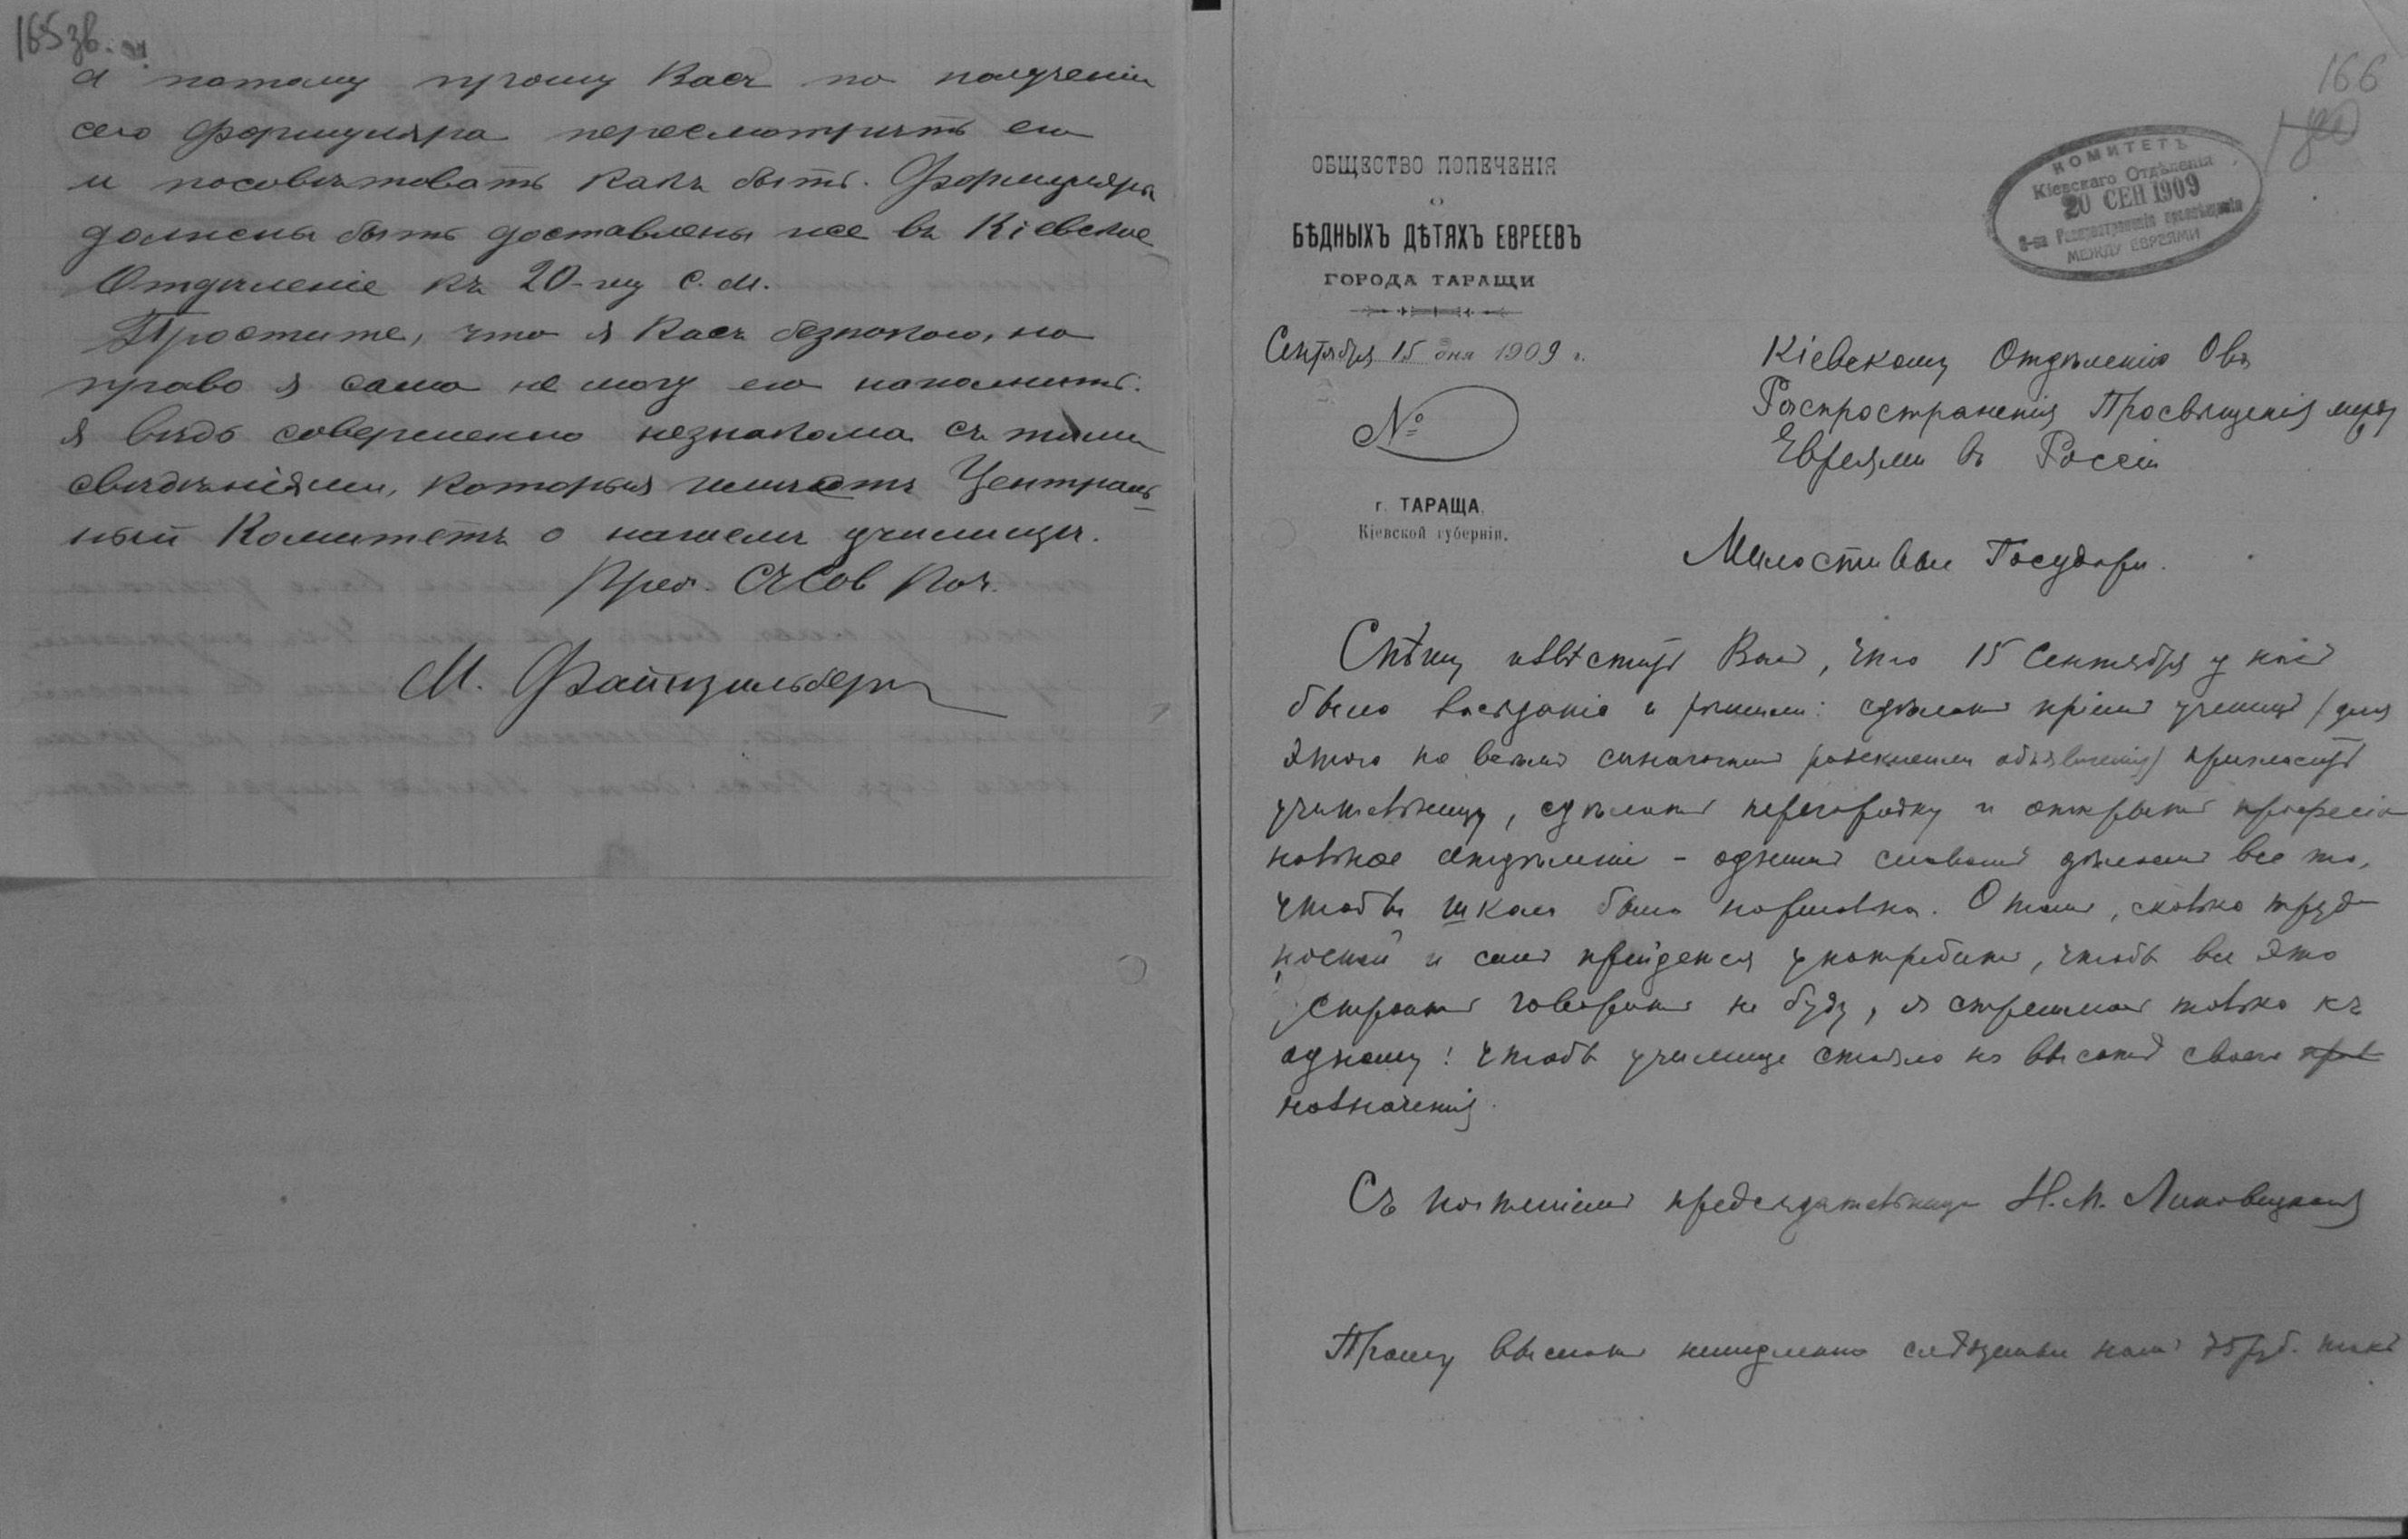 165 зв.
а потому прошу Васъ по полученіи
сего формуляра пересмотрѣть его
и посовѣтовать какъ быть. Формуляры
должны быть доставлены же въ Кіевское
Отдѣленіе къ 20-му с. м.
Простите, что я Васъ безпокою, но
право я сама не могу его наполнить.
Я вѣдь совершенно незнакома съ тѣми
свѣдѣніями, которыя имѣетъ Централь
ный Комитетъ о нашемъ училищѣ.
Съ сов поч.
М. Файнзильберъ
166
ОБЩЕСТВО ПОПЕЧЕНІЯ
О
БѢДНЫХЪ ДѢТЯХЪ ЕВРЕЕВЪ
ГОРОДА ТАРАЩИ
Сентября 15 дня 1909 г.
№
г. ТАРАЩА.
Кіевской губерніи.
КОМИТЕТЪ
Кіевскаго Отдѣленія
20 СЕН 1909
О-ва Распространенія просвѣщенія
МЕЖДУ ЕВРЕЯМИ
Кіевскому Отдѣленію Овa
Распространенія Просвѣщенія между
Евреями въ Россіи
Милостивые Государи.
Спѣшу извѣстить Вамъ, что 15 Сентября у насъ
было засѣданіе и рѣшили: сдѣлать пріемъ ученицъ (для
этого по всѣмъ синагогамъ объявленія) пригласить
учительницу, сдѣлать перегородку и открыть професіо
нальное отдѣленіе - однимъ словомъ дѣлаемъ все то,
чтобъ школа была нормальна. О томъ, сколько труд
ностей и силъ прийдется употребить, чтобъ все это
устроить говорить не буду, я стремлюсь только къ
одному! чтобъ училище стояло на высотѣ своего
назначенія.
Съ почтеніемъ предсѣдательница Н. М. Липовецкая
Прошу выслать немедленно слѣдуемые намъ 75 руб. такъ